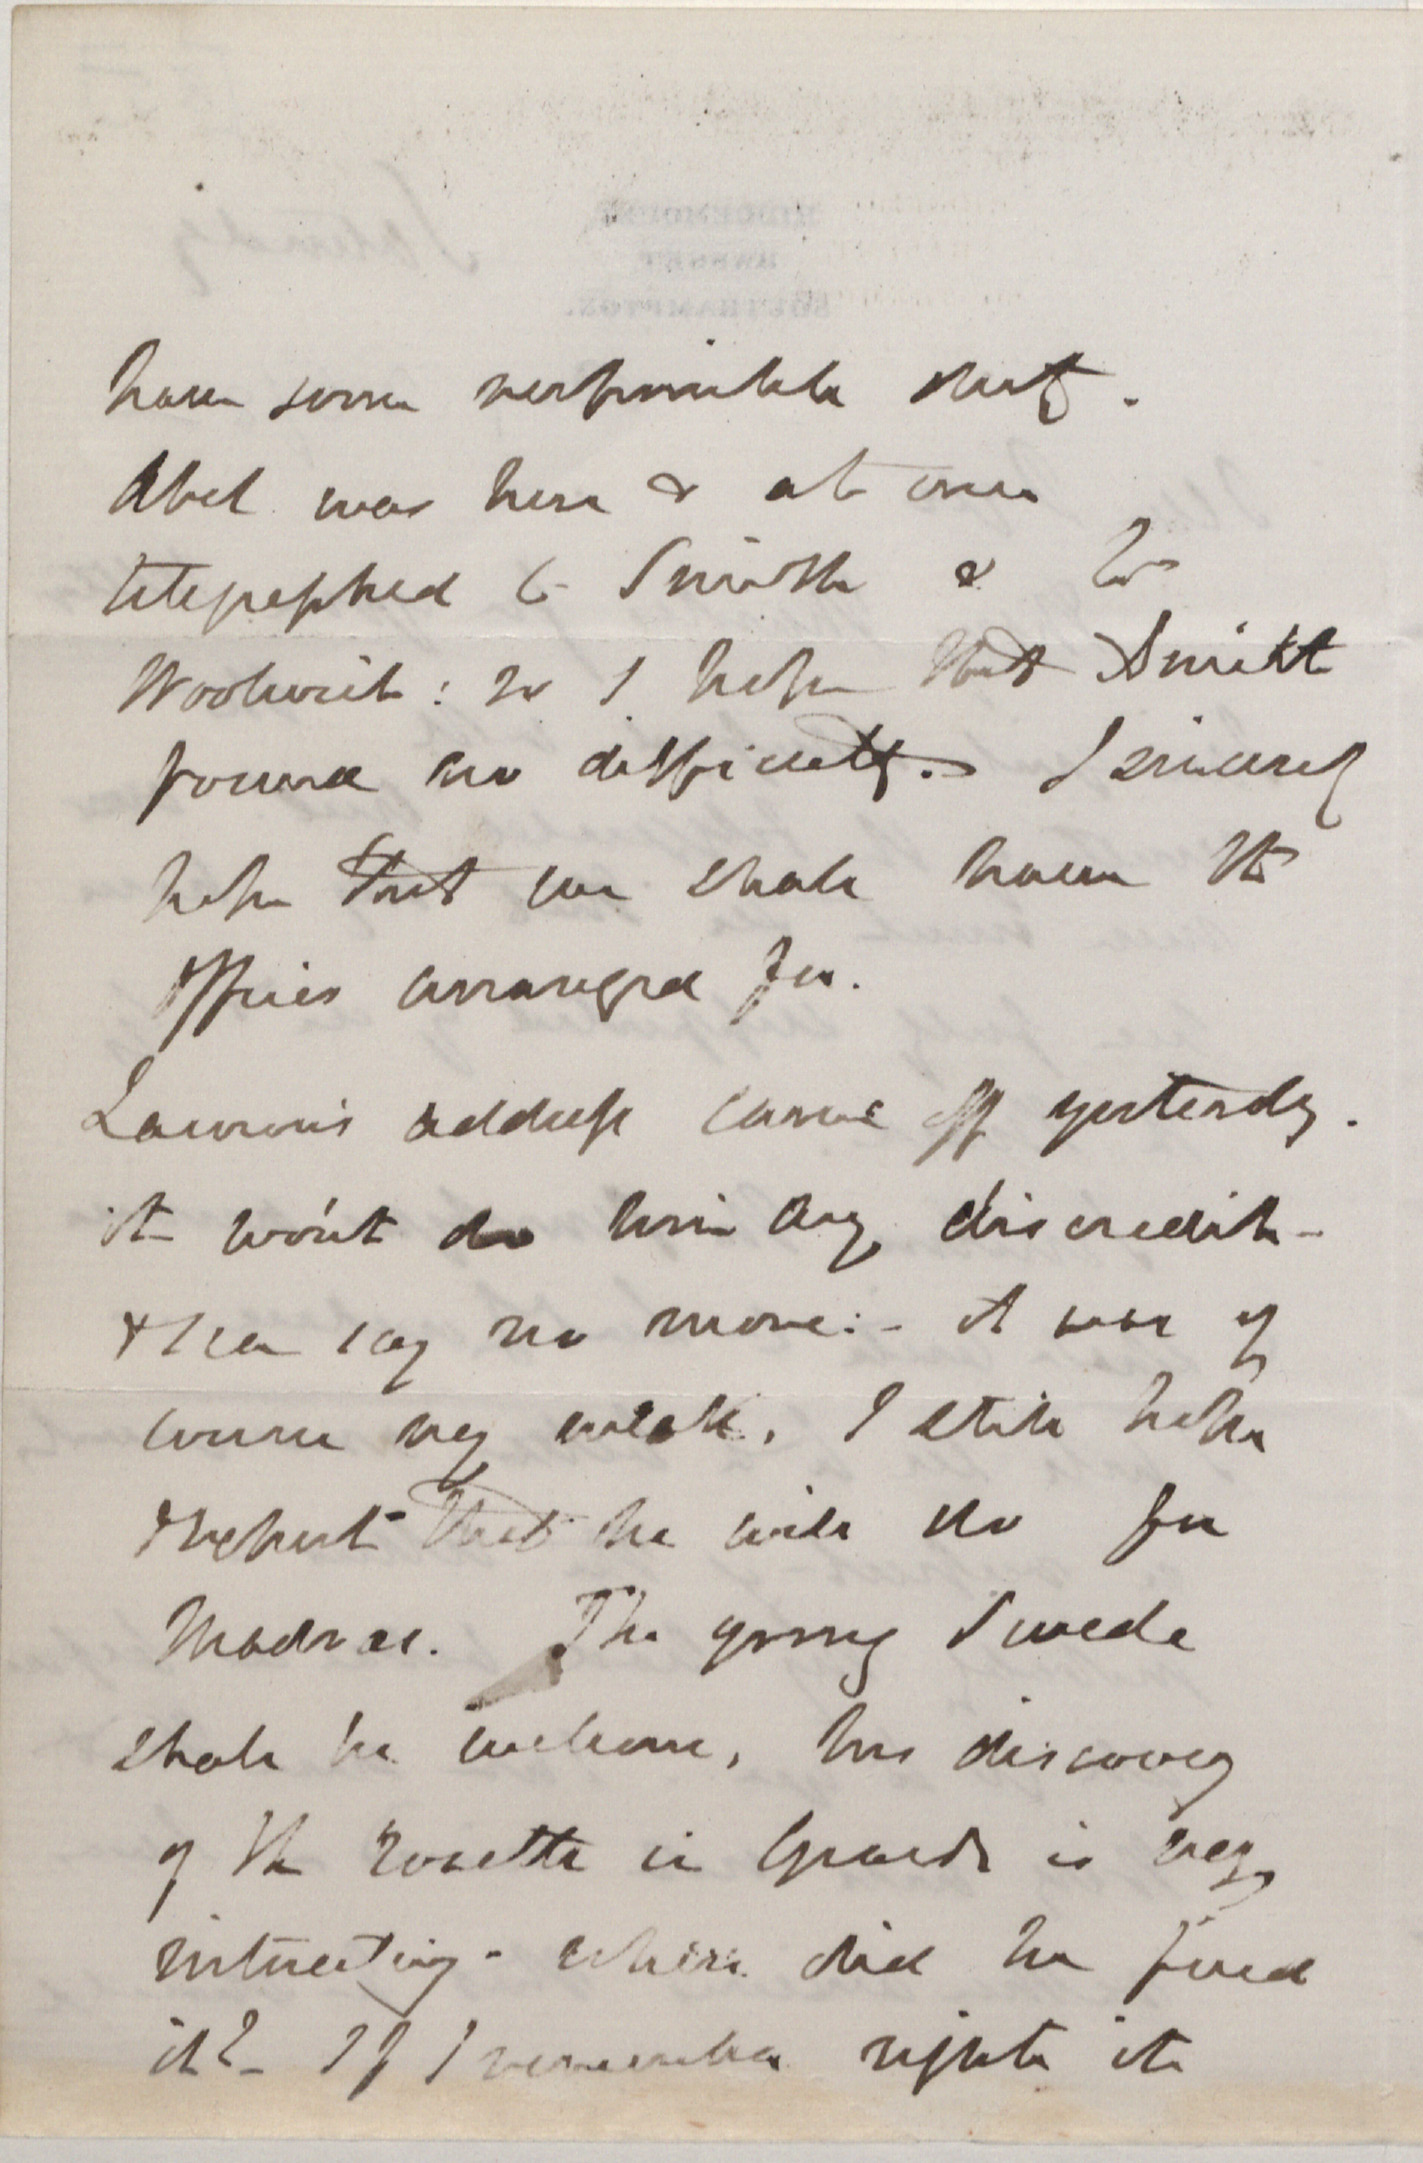 have some responsible duty.
Abel was here & at once
telegraphed to Smith & to
Woolwich: so I hope that Smith
found no difficulty. I sincerely
hope that we shall have the
Offices arranged for.
Lawson's address came off yesterday.
it won't do him any discredit -
I can say no more: - it was of
course very weak. I still hope
that he will do for
Madras. The young Swede
shall be welcome, his discovery
of the rosette in is very
interesting - where did he find
it? - If I remember right it